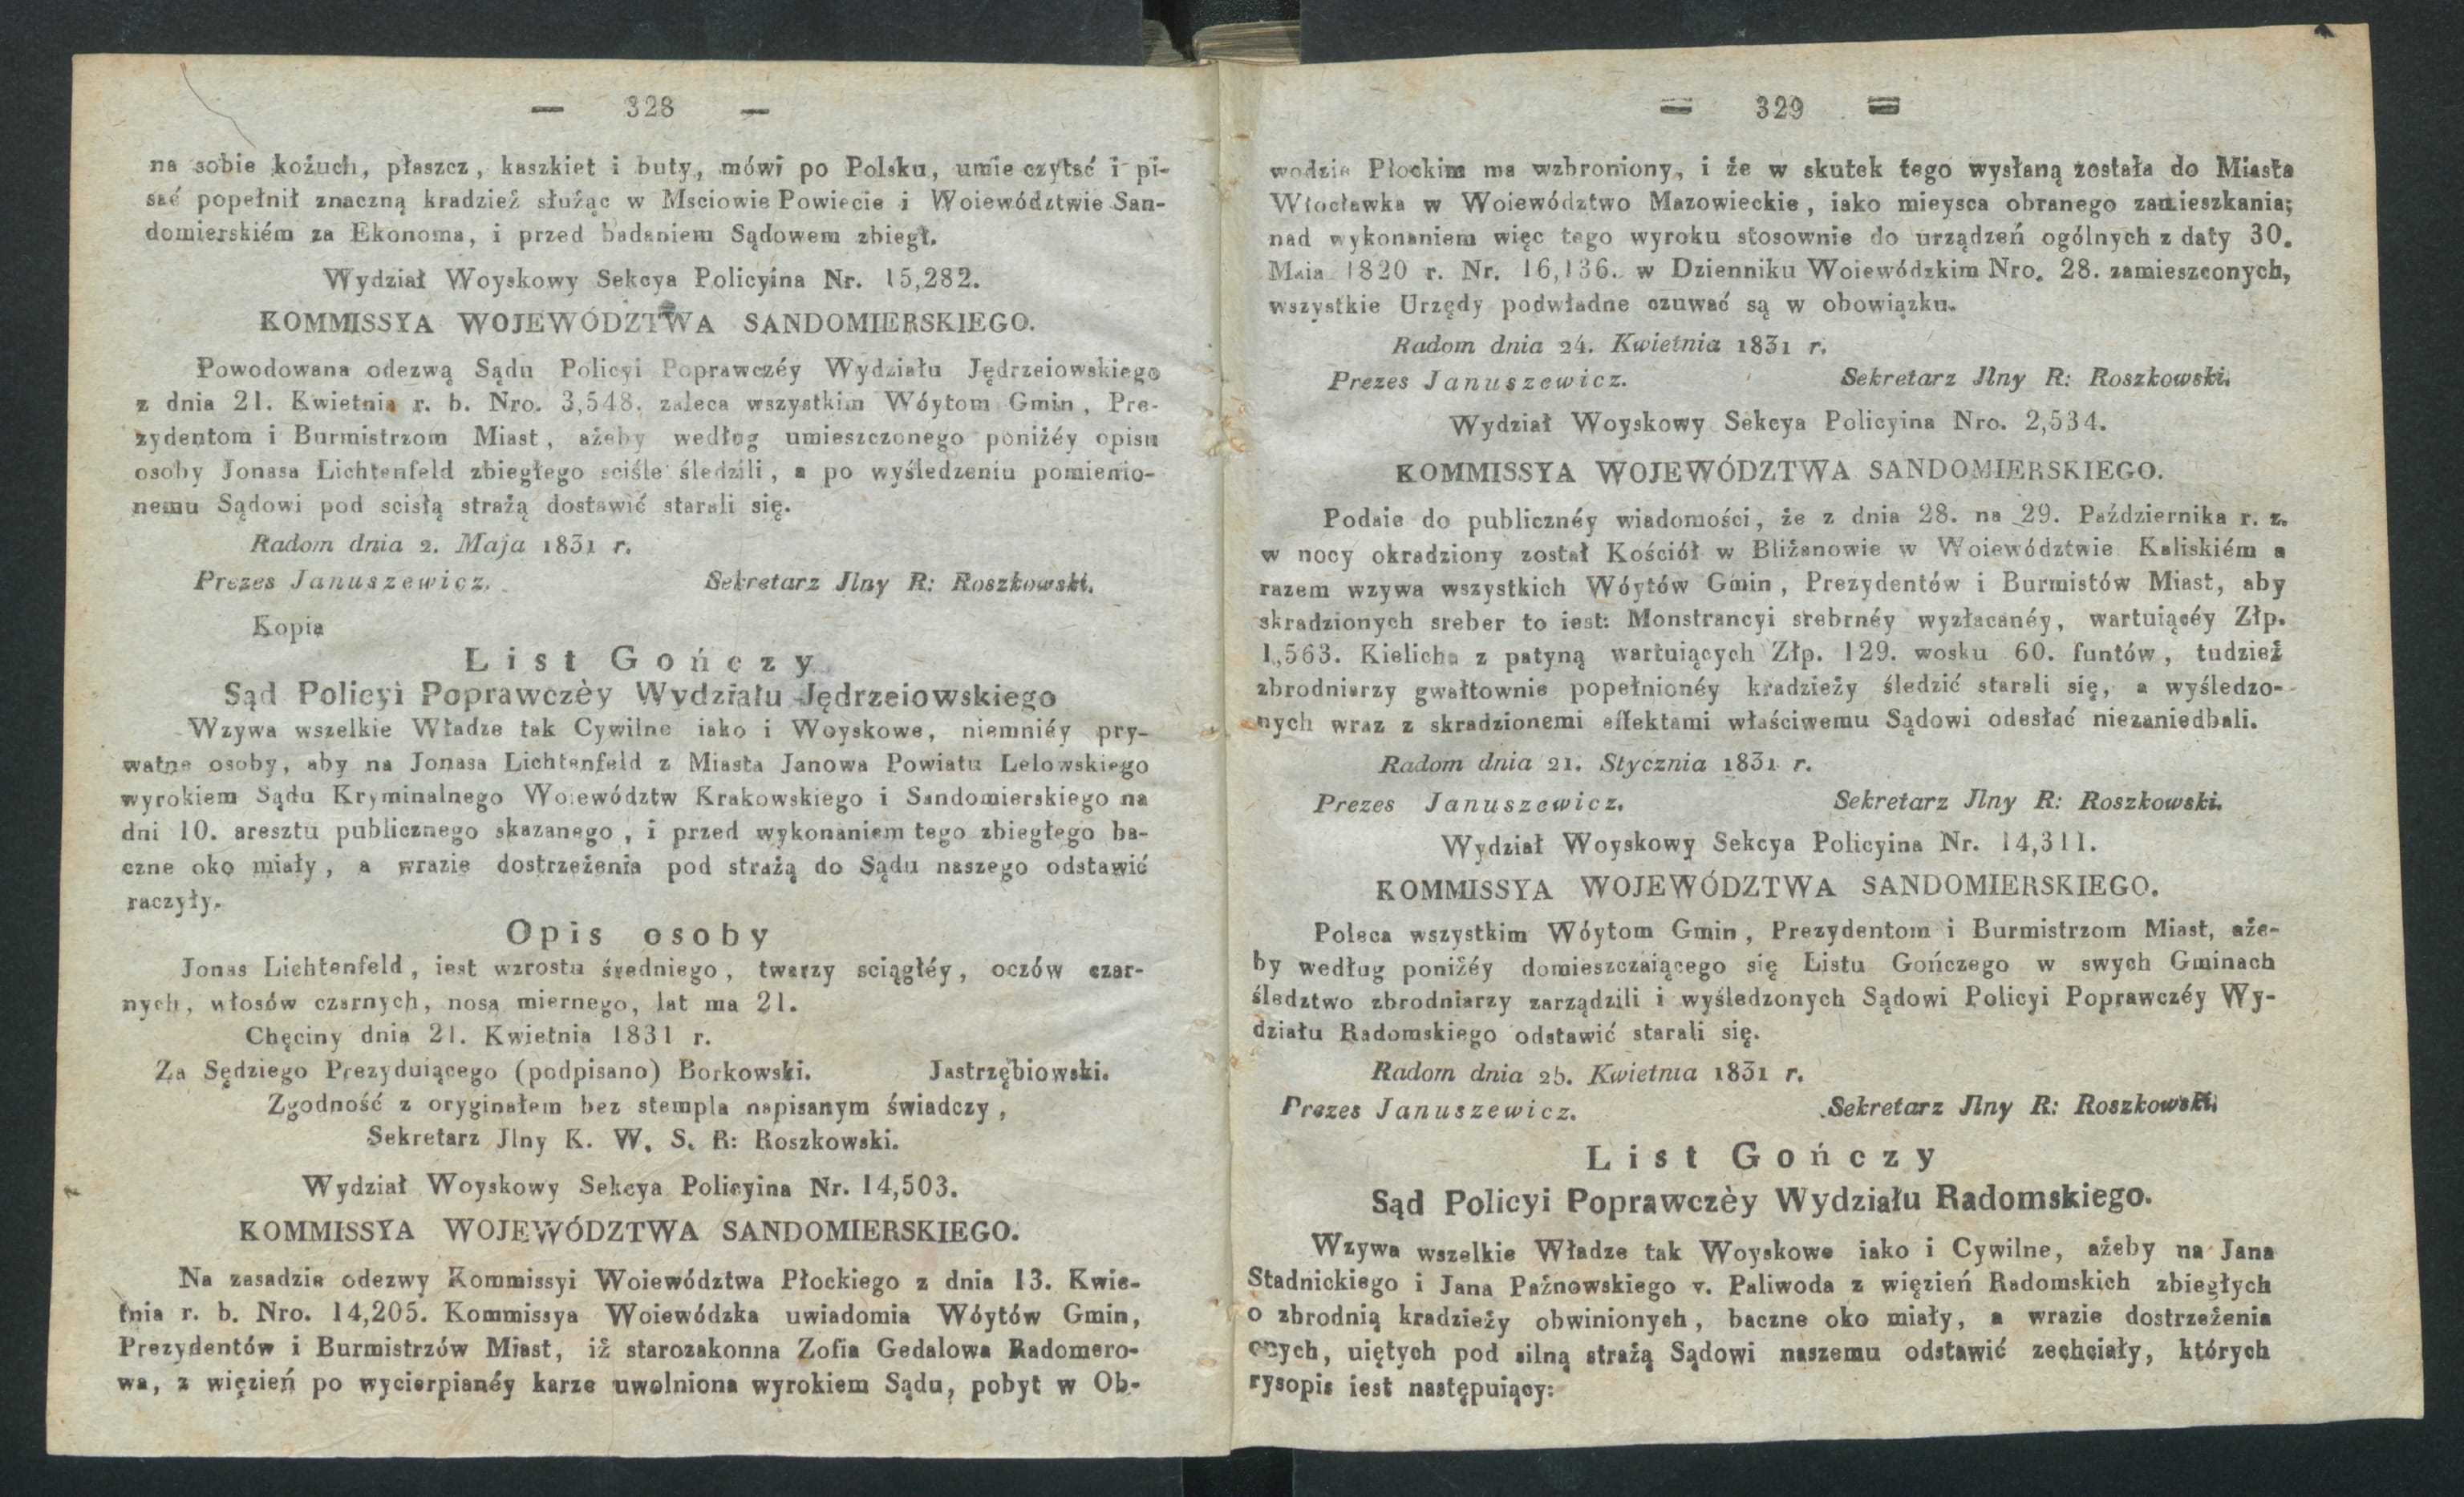 — 328 —
na sobie kożuch, płaszcz, kaszkiet i buty, mówi po Polsku, umie czytać i pi-
sać popełnił znaczną kradzież służąc w Msciowie Powiecie i Woiewództwie San-
domierskiém za Ekonoma, i przed badaniem Sądowem zbiegł.
Wydział Woyskowy Sekcya Policyina Nr. 15,282.
KOMMISSYA WOJEWÓDZTWA SANDOMIERSKIEGO.
Powodowana odezwą Sądu Policyi Poprawczéy Wydziału Jędrzeiowskiego
z dnia 21. Kwietnia r. b. Nro. 3,548. zaleca wszystkim Wóytom Gmin, Pre-
zydentom i Burmistrzom Miast, ażeby według umieszczonego poniżéy opisu
osoby Jonasa Lichtenfeld zbiegłego sciśle śledzili, a po wyśledzeniu pomienio-
nemu Sądowi pod scisłą strażą dostawić starali się.
Radom dnia 2. Maja 1831 r.
Prezes Januszewicz. Sekretarz Jlny R: Roszkowski.
Kopia
List Gończy
Sąd Policyi Poprawczèy Wydziału Jędrzeiowskiego
Wzywa wszelkie Władze tak Cywilne iako i Woyskowe, niemniéy pry-
watne osoby, aby na Jonasa Lichtenfeld z Miasta Janowa Powiatu Lelowskiego
wyrokiem Sądu Kryminalnego Woiewództw Krakowskiego i Sandomierskiego na
dni 10. aresztu publicznego skazanego, i przed wykonaniem tego zbiegłego ba-
czne oko miały, a wrazie dostrzeżenia pod strażą do Sądu naszego odstawić
raczyły.
Opis osoby
Jonas Lichtenfeld, iest wzrostu średniego, twarzy sciągłéy, oczów czar-
nych, włosów czarnych, nosa miernego, lat ma 21.
Chęciny dnia 21. Kwietnia 1831 r.
Za Sędziego Prezyduiącego (podpisano) Borkowski. Jastrzębiowski.
Zgodność z oryginałem bez stempla napisanym świadczy,
Sekretarz Jlny K. W. S. R: Roszkowski.
Wydział Woyskowy Sekcya Policyina Nr. 14,503.
KOMMISSYA WOJEWÓDZTWA SANDOMIERSKIEGO.
Na zasadzie odezwy Kommissyi Woiewództwa Płockiego z dnia 13. Kwie-
tnia r. b. Nro. 14,205. Kommissya Woiewódzka uwiadomia Wóytów Gmin,
Prezydentów i Burmistrzów Miast, iż starozakonna Zofia Gedalowa Radomero-
wa, z więzień po wycierpianéy karze uwolniona wyrokiem Sądu, pobyt w Ob-
= 329 =
wodzie Płockim ma wzbroniony, i że w skutek tego wysłaną została do Miasta
Włocławka w Woiewództwo Mazowieckie, iako mieysca obranego zamieszkania;
nad wykonaniem więc tego wyroku stosownie do urządzeń ogólnych z daty 30.
Maia 1820 r. Nr. 16,136. w Dzienniku Woiewódzkim Nro. 28. zamieszconych,
wszystkie Urzędy podwładne czuwać są w obowiązku.
Radom dnia 24. Kwietnia 1831 r.
Prezes Januszewicz. Sekretarz Jlny R: Roszkowski.
Wydział Woyskowy Sekcya Policyina Nro. 2,534.
KOMMISSYA WOJEWÓDZTWA SANDOMIERSKIEGO.
Podaie do publicznéy wiadomości, że z dnia 28. na 29. Października r. z.
w nocy okradziony został Kościół w Bliżanowie w Woiewództwie Kaliskiém a
razem wzywa wszystkich Wóytów Gmin, Prezydentów i Burmistów Miast, aby
skradzionych sreber to iest: Monstrancyi srebrnéy wyzłacanéy, wartuiącéy Złp.
1,563. Kielicha z patyną wartuiących Złp. 129. wosku 60. funtów, tudzież
zbrodniarzy gwałtownie popełnionéy kradzieży śledzić starali się, a wyśledzo-
nych wraz z skradzionemi effektami właściwemu Sądowi odesłać niezaniedbali.
Radom dnia 21. Stycznia 1831 r.
Prezes Januszewicz. Sekretarz Jlny R: Roszkowski.
Wydział Woyskowy Sekcya Policyina Nr. 14,311.
KOMMISSYA WOJEWÓDZTWA SANDOMIERSKIEGO.
Poleca wszystkim Wóytom Gmin, Prezydentom i Burmistrzom Miast, aże-
by według poniżéy domieszczaiącego się Listu Gończego w swych Gminach
śledztwo zbrodniarzy zarządzili i wyśledzonych Sądowi Policyi Poprawczéy Wy-
działu Radomskiego odstawić starali się.
Radom dnia 25. Kwietnia 1831 r.
Prezes Januszewicz. Sekretarz Jlny R: Roszkowski.
List Gończy
Sąd Policyi Poprawczèy Wydziału Radomskiego.
Wzywa wszelkie Władze tak Woyskowe iako i Cywilne, ażeby na Jana
Stadnickiego i Jana Paźnowskiego v. Paliwoda z więzień Radomskich zbiegłych
o zbrodnią kradzieży obwinionych, baczne oko miały, a wrazie dostrzeżenia
onych, uiętych pod silną strażą Sądowi naszemu odstawić zechciały, których
rysopis iest następuiący: